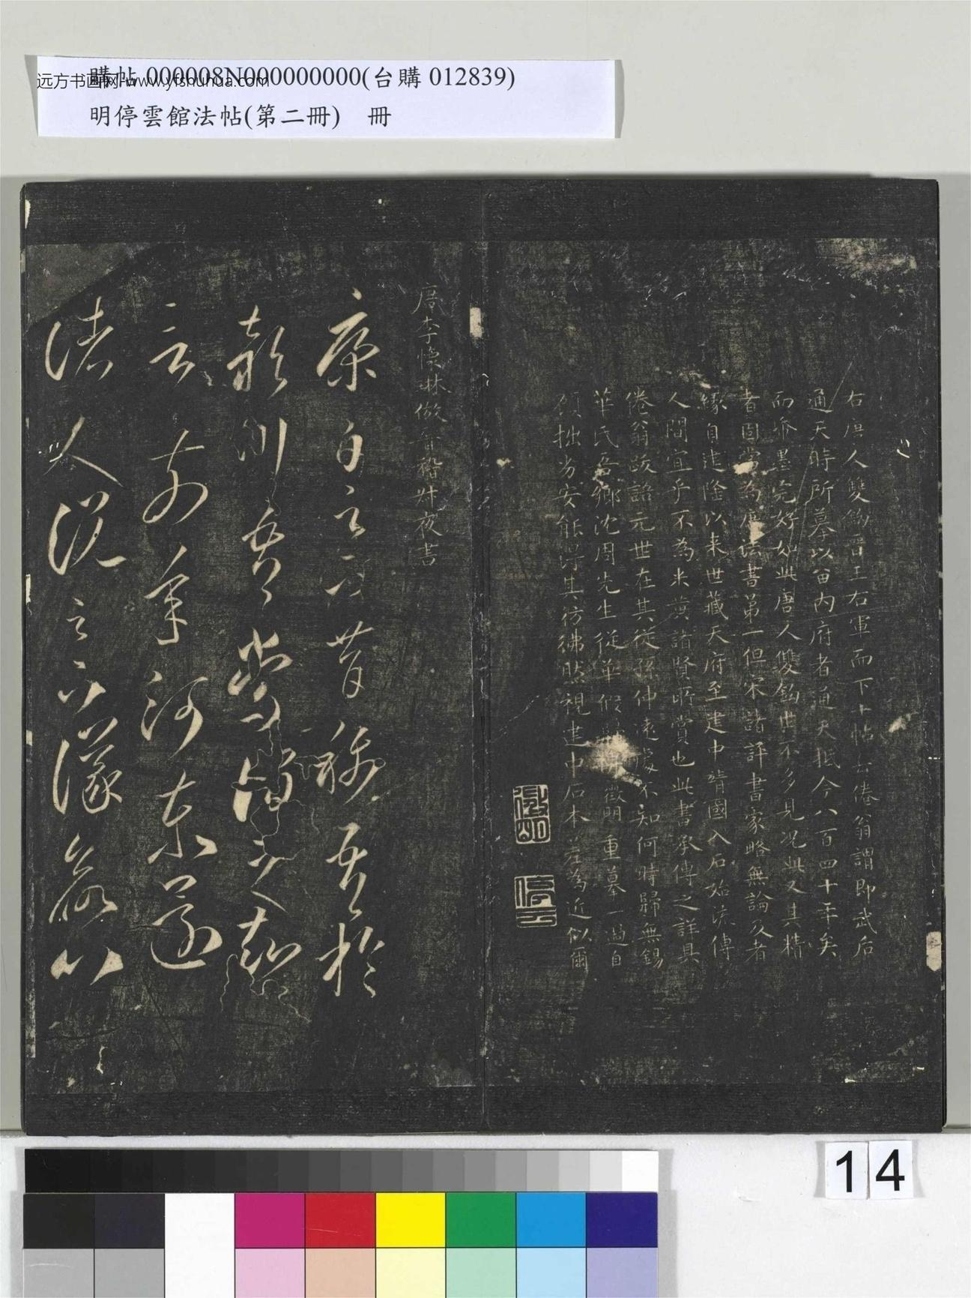 購帖 000008N000000000(台購 012839)
远方书画网 www.yfshuhua.com
明停雲館法帖(第二冊) 冊
右唐人雙鈎晉王右軍而下十帖岳倦翁謂即武后
通天時所摹以留內府者通天抵今八百四十年矣
而紙墨完好如此唐人雙鈎世不多見況此又其精
者固當為唐法書第一但宋諸評書家略無論及者
緣自建隆以來世藏天府至建中靖國入石始流傳
人間宜乎不為米黃諸賢所賞也此書承傳之詳具
倦翁跋語元世在其從孫仲遠處不知何時歸無錫
華氏吾鄉沈周先生從華假徵明重摹一過自
傾拙劣安能得其彷彿然視建中石本差為近似爾
徵明
停雲
唐李懷琳倣晉嵇叔夜書
康白足下昔稱吾於
潁川吾嘗謂之知
言前年河東還
諸人說足下議欲以
14